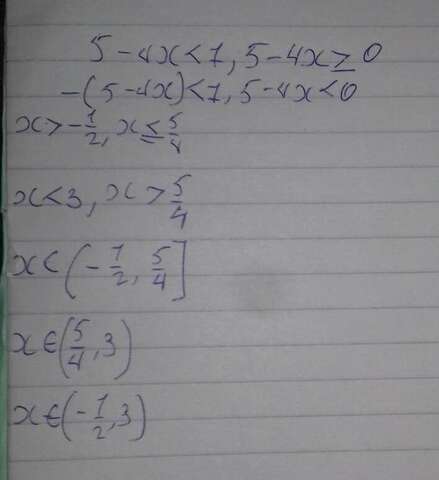 5-4x<7, 5-4x≥0
-(5-4x)<7, 5-4x<0
x>-1/2, x≤5/4
x<3, x>5/4
x<(-1/2, 5/4]
x∈(5/4, 3)
x∈(-1/2, 3)